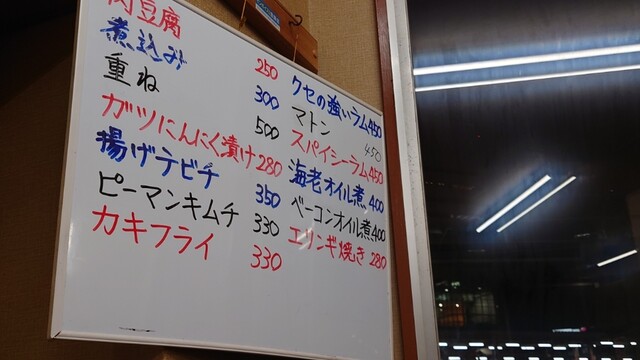 肉豆腐 250
煮込み 300
重ね 500
ガツにんにく漬け 280
揚げテビチ 350
ピーマンキムチ 330
カキフライ 330
クセの強いラム 450
マトン 450
スパイシーラム 450
海老オイル煮 400
ベーコンオイル煮 400
エリンギ焼き 280